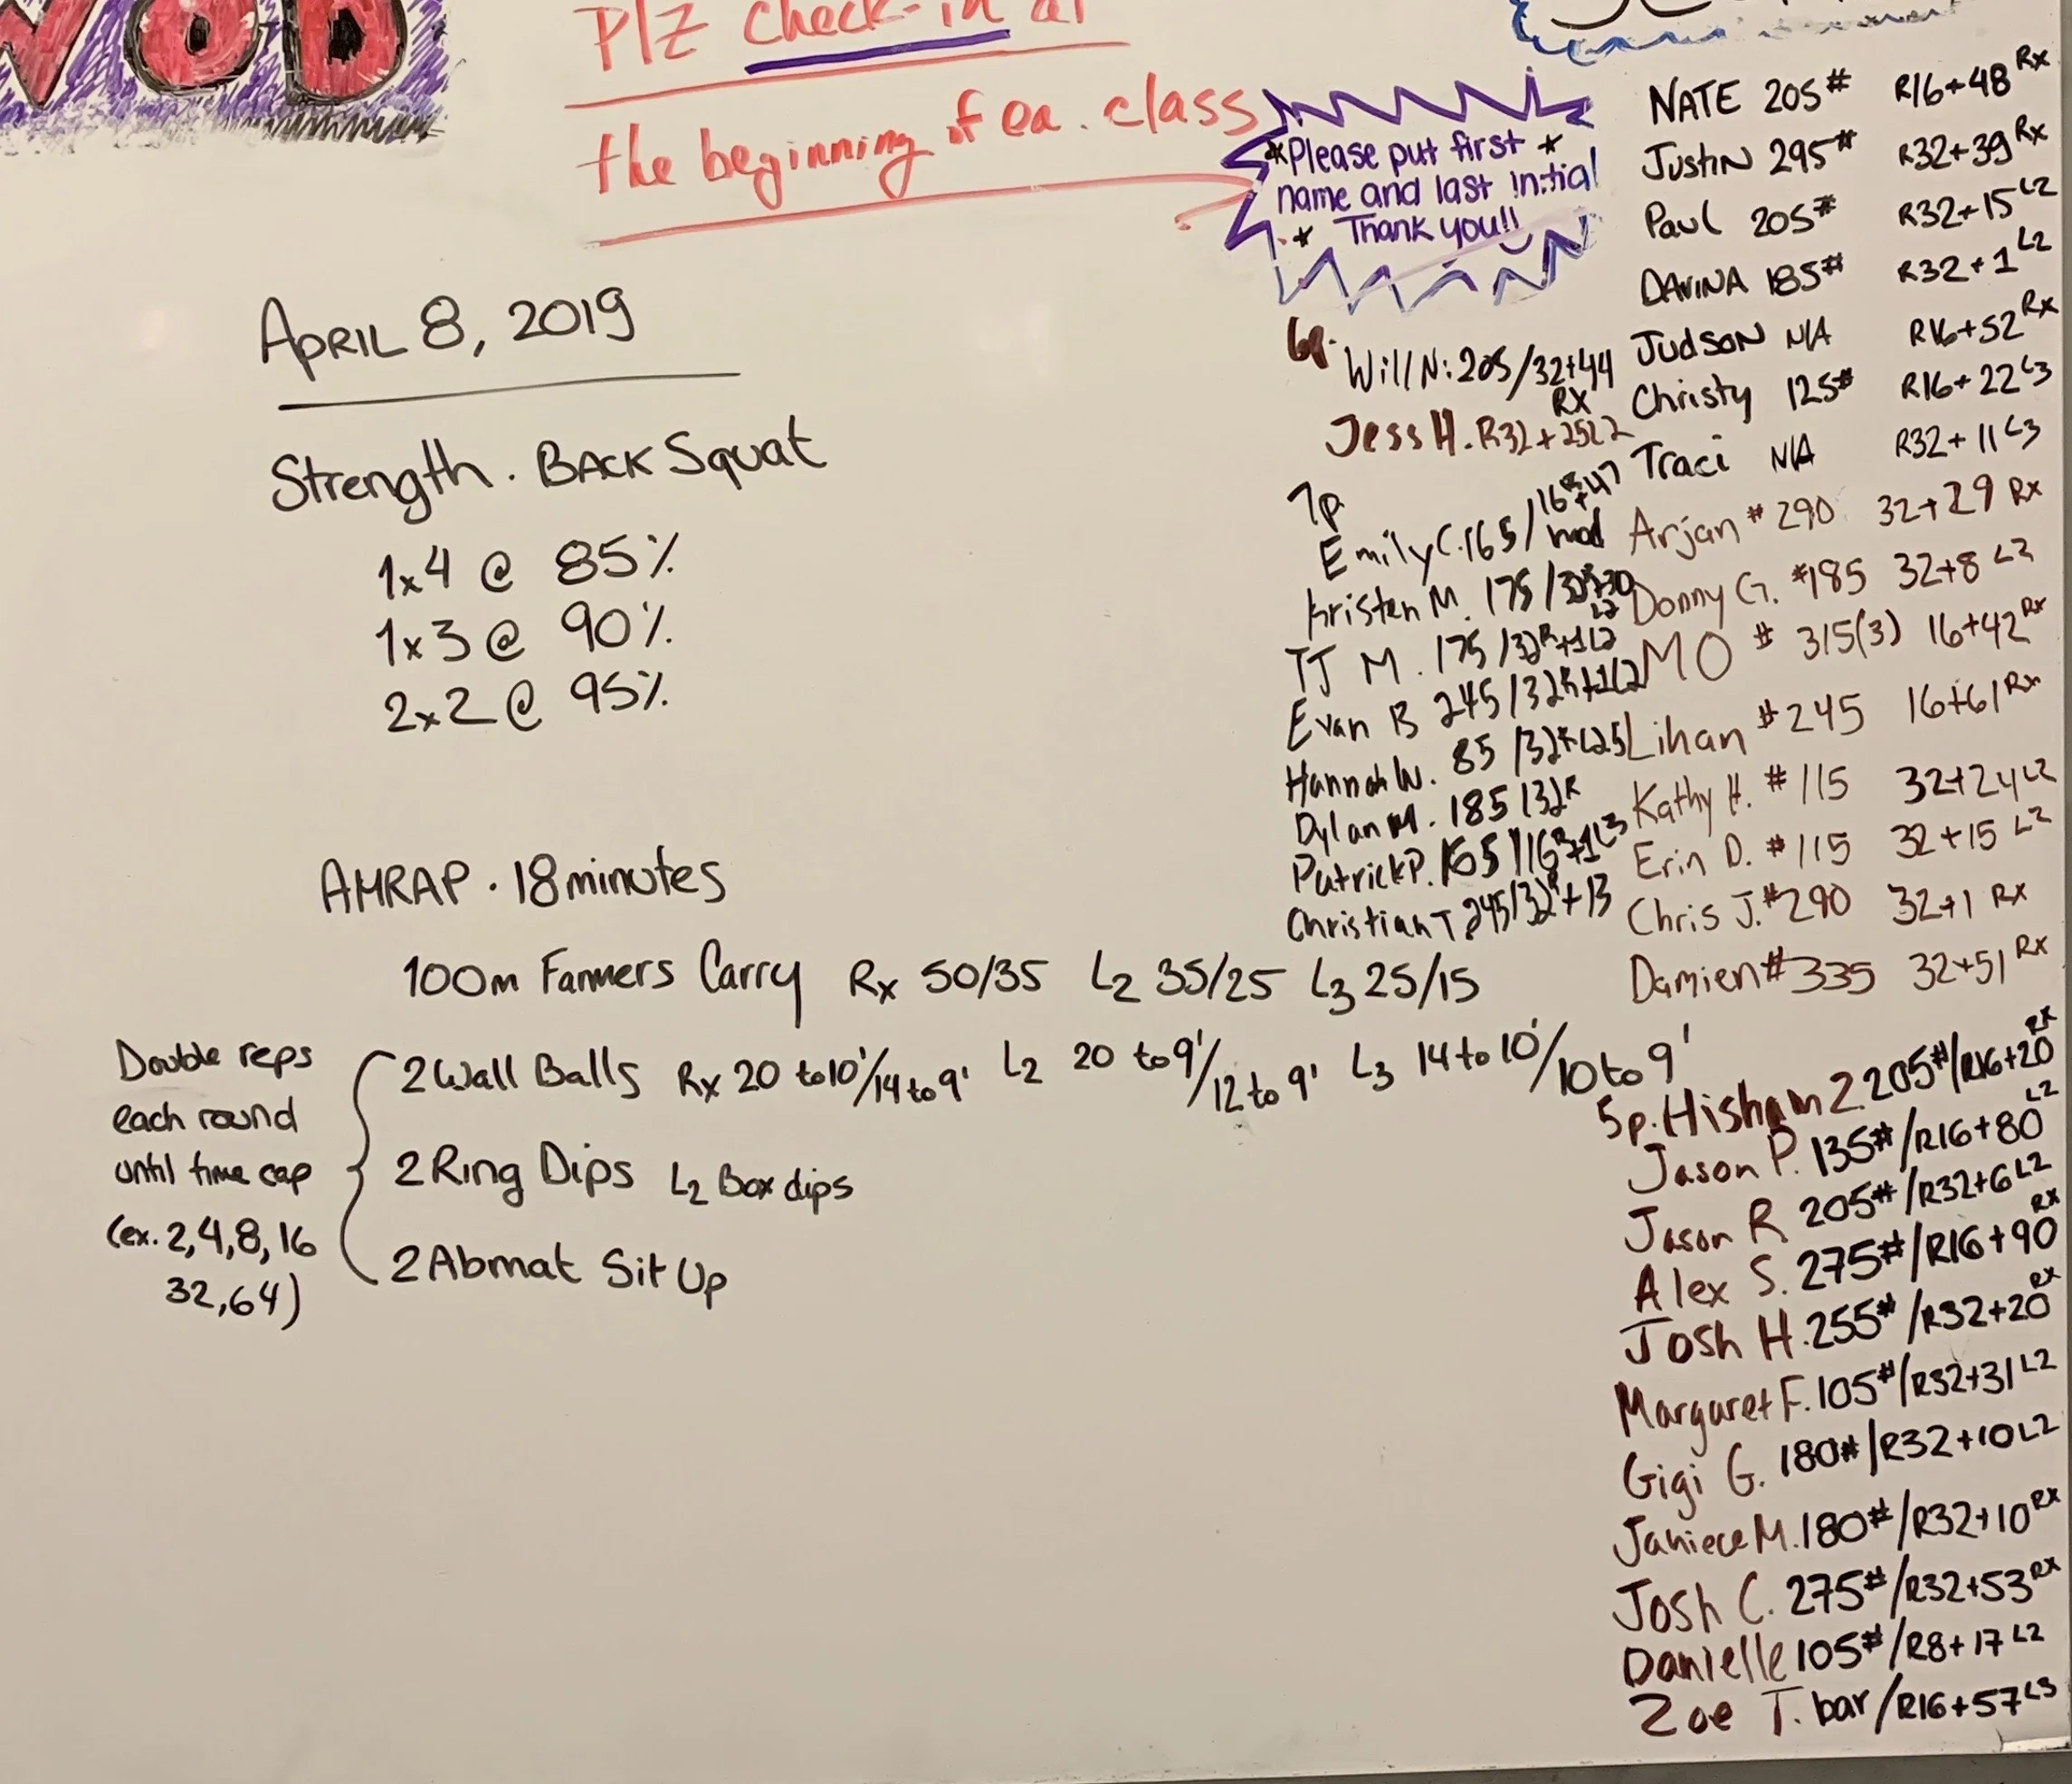 WOD
Plz check-in at
the beginning of ea. class
*Please put first *
name and last initial
* Thank you!!
APRIL 8, 2019
Strength. BACK Squat
1x4 @ 85%
1x3 @ 90%
2x2 @ 95%
AMRAP. 18 minutes
100m Farmers Carry Rx 50/35 L2 35/25 L3 25/15
Double reps
each round
until time cap
(ex. 2,4,8,16
32,64)
2 Wall Balls Rx 20 to 10'/14 to 9' L2 20 to 9'/12 to 9' L3 14 to 10'/10 to 9'
2 Ring Dips L2 Box dips
2 Abmat Sit Up
NATE 205# R16+48 Rx
Justin 295# R32+39 Rx
Paul 205# R32+15 L2
DAVINA 185# R32+1 L2
JudsoN N/A R16+52 Rx
Christy 125# R16+22 L3
Traci N/A R32+11 L3
Arjan #290 32+29 Rx
Donny G. #185 32+8 L2
MO # 315(3) 16+42 Rx
Lihan #245 16+61 Rx
Kathy H. #115 32+24 L2
Erin D. #115 32+15 L2
Chris J. #290 32+1 Rx
Damien #335 32+51 Rx
5p. Hisham Z 205#/R16+20 Rx
Jason P. 135#/R16+80 L2
Jason R 205#/R32+6 L2
Alex S. 275#/R16+90 Rx
Josh H. 255#/R32+20 Rx
Margaret F. 105#/R32+31 L2
Gigi G. 180#/R32+10 L2
Janiece M. 180#/R32+10 Rx
Josh C. 275#/R32+53 Rx
Danielle 105#/R8+17 L2
Zoe T. bar/R16+57 L3
6p.
Will N: 205/32+44
RX
Jess H. R32+25 L2
7p
Emily C. 165/16R+47
mod
Kristen M. 175/
L2
TJ M. 175/32R+1 L2
Evan B 245/32R+1 L2
Hannah W. 85/
Dylan M. 185/32R
Patrick P. 165/16R+1 L3
Christian T 245/32R+13